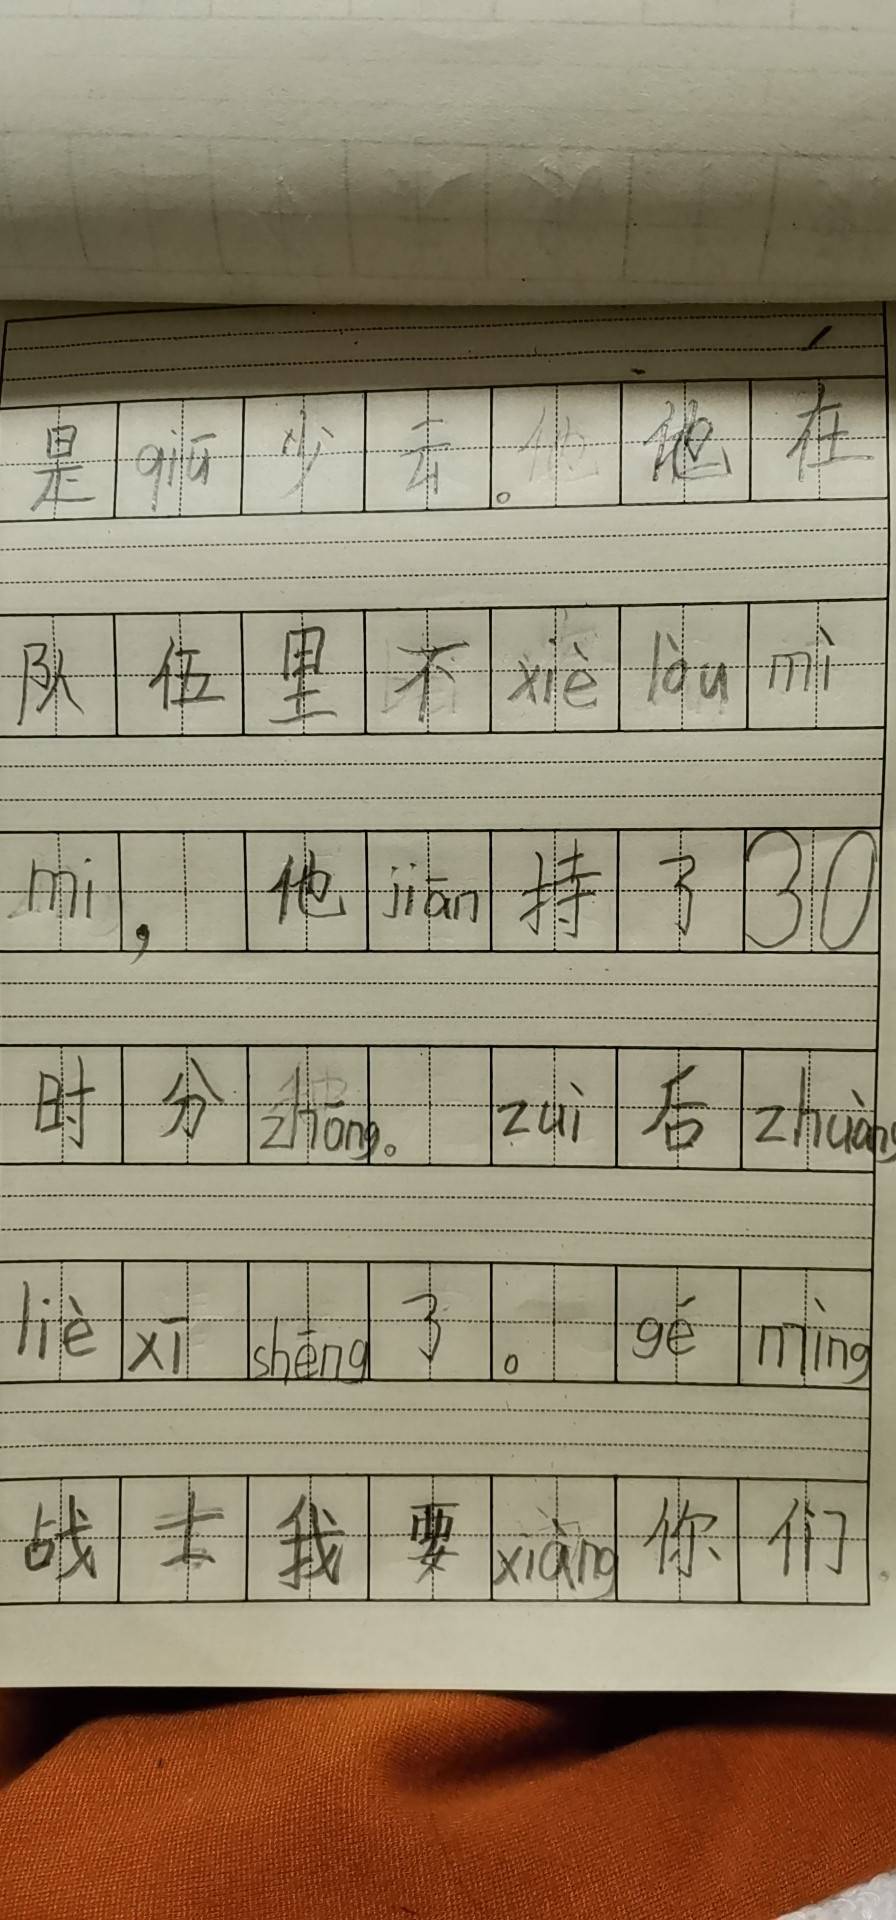 是qiū少云。他在
队伍里不xiè lòu mì
mì，他jiān持了30
时分zhōng。zuì后zhuàng
liè xī shēng了。gé mìng
战士我要xiàng你们